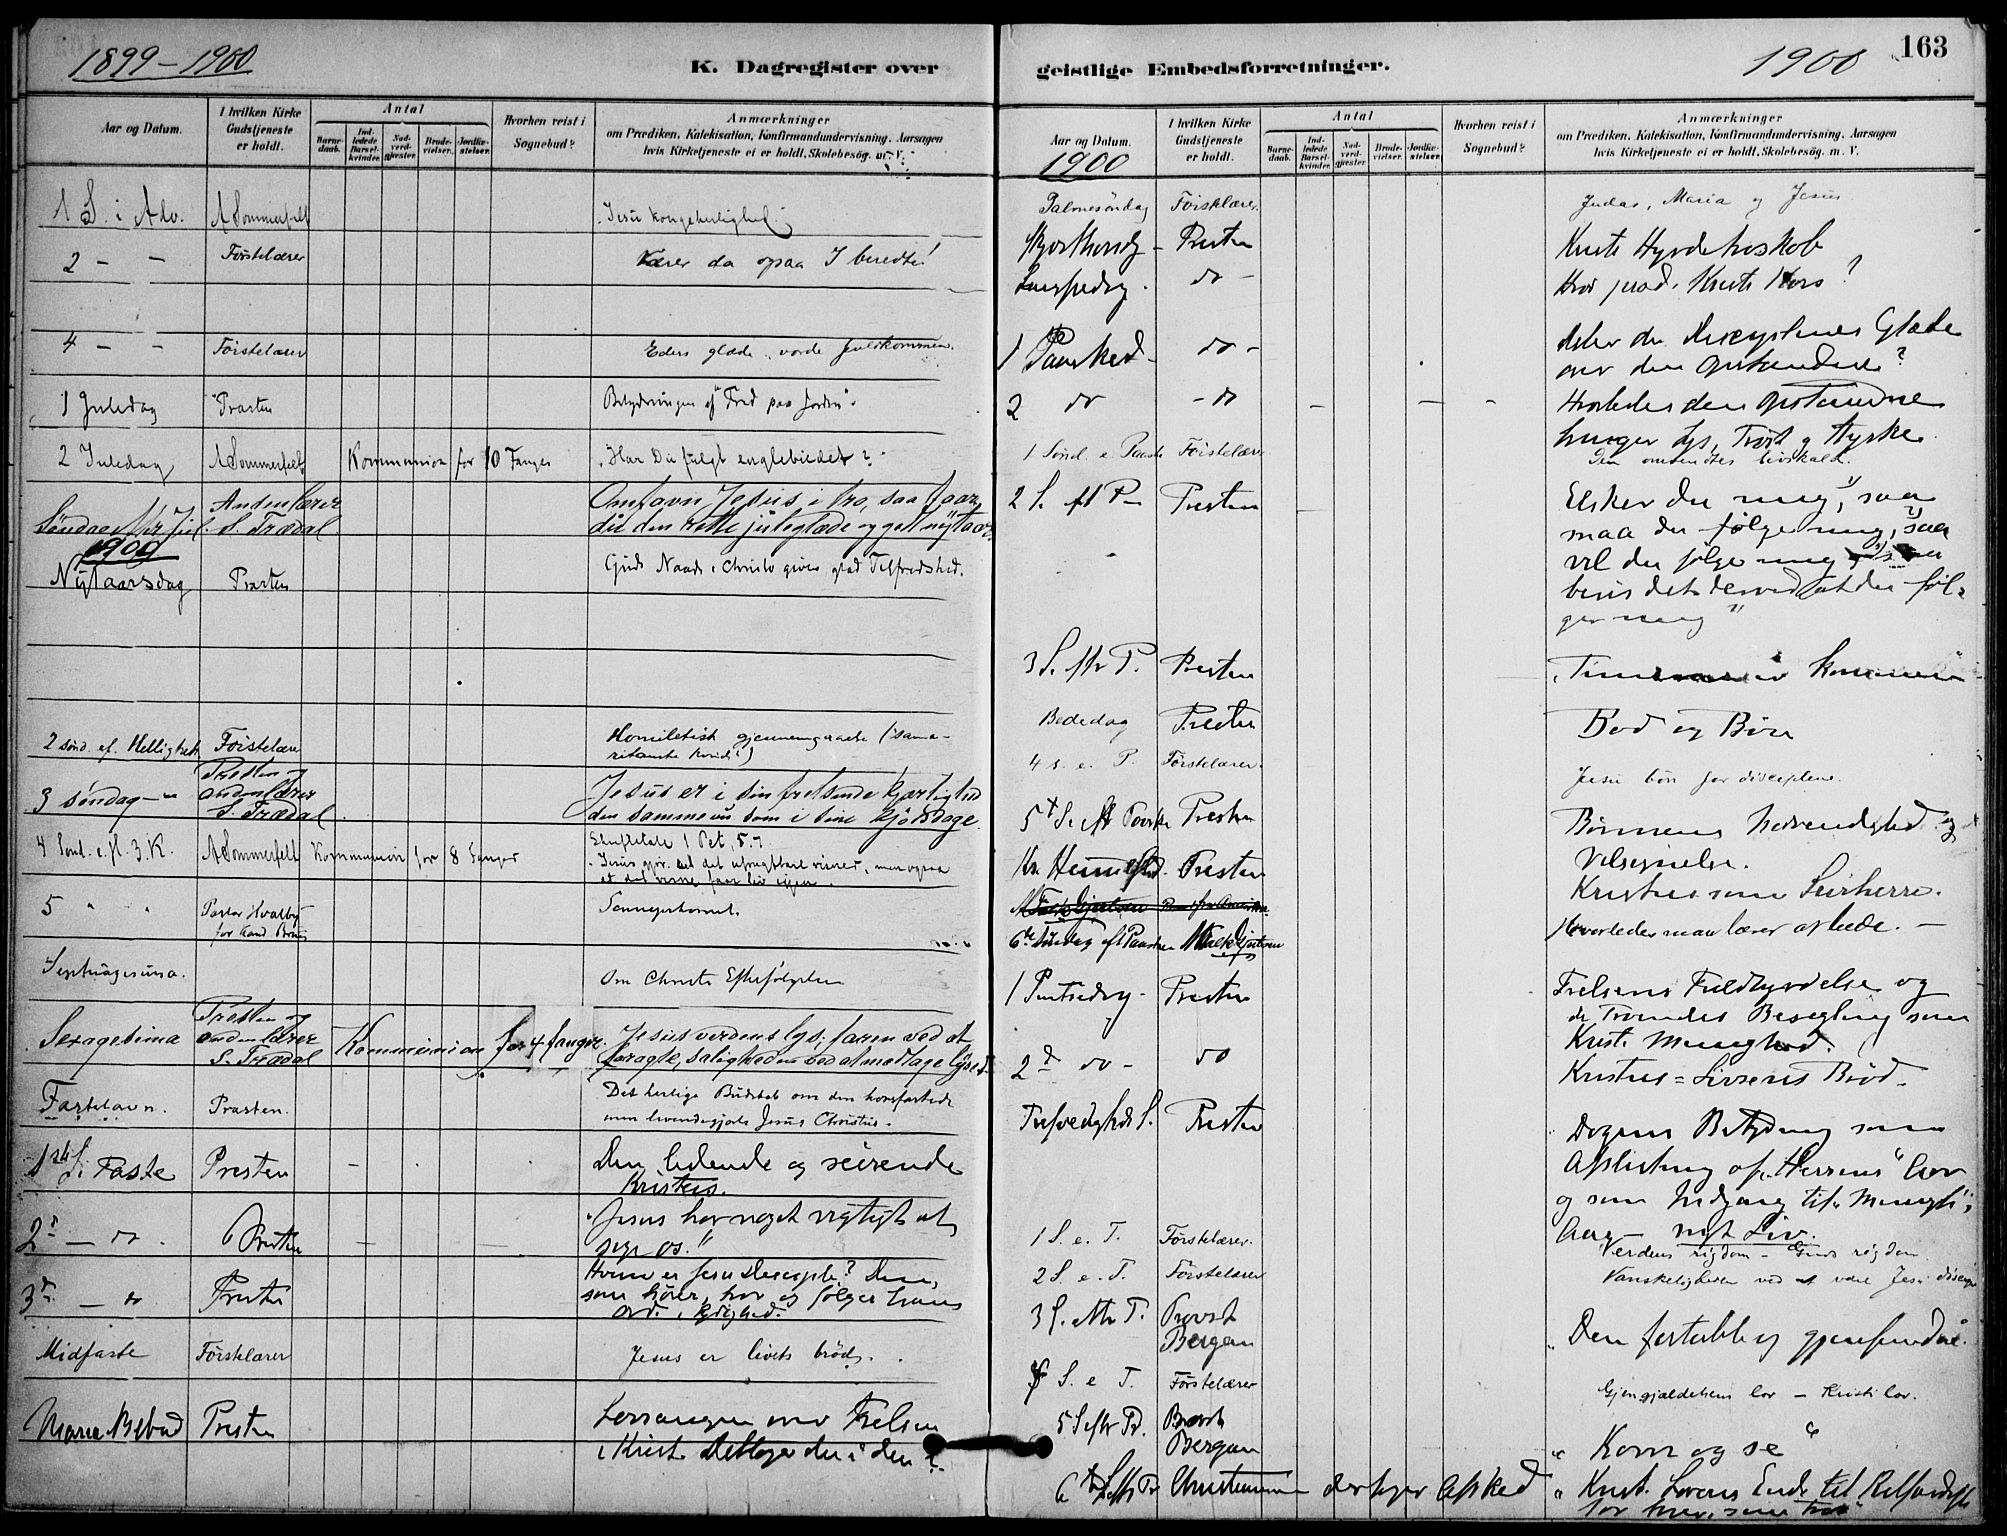 1899-1900
K. Dagregister over
Aar og Datum.
I hvilken Kirke Gudstjeneste er holdt.
Antal
Barne-daab.
Ind-ledede Barsel-kvinder.
Nad-verd-gjester.
Brude-vielser.
Jordfæ-stelser.
Hvorhen reist i Sognebud?
Anmærkninger
om Prædiken, Katekisation, Konfirmandundervisning, Aarsagen
hvis Kirketjeneste ei er holdt, Skolebesög. m. V.
1 S. i Adv. A Sommerfelt Jesu kongeherlighed.
2 - - Förstelærer Værer da opaa I beredte!
4 - - Förstelærer Eders glæde vorde fuldkommen.
1 Juledag Præsten Betydningen af "Fred paa Jorden".
2 Juledag A Sommerfelt Kommunion for 10 Fanger "Har Du fulgt englebudet?"
Andenlærer Omfavn Jesus i tro, saa faar
Søndag Jul. S. Trædal du den rette juleglæde og godt nytaar.
1900
Nytaarsdag Præsten Guds Naade i Christo giver glad Tilfredshed.
2 sönd. ef. Helligtrek. Förstelærer Homiletisk gjennemgaaelse (sama-
ritanske kvinde)
Presten og
3 søndag - " andenlærer Jesus er i sin frelsende kjærlighed
S. Trædal. den samme nu som i sine kjøds dage.
4 Sönd. e. H. 3. K. A Sommerfelt Kommunion for 8 Fanger 1 Pet. 5.7
5 " " Pastor Hvalby Sennepskornet.
for Kand Bruus
Septuagesima. Om Christi Efterfølgelse
Presten og
Sexagesima andenlærer Kommunion for 4 fanger. Jesus verdens lys; faren ved at
S. Trædal foragte, saligheden ved at modtage lyset.
Fastelavn. Præsten. Det herlige Budskab om den korsfæstede
men levendegjorte Jesus Christus.
1ste S. i Faste Presten Den lidende og seirende
Kristus.
2n - do. Presten "Jesus har noget vigtigt at
sige os."
3n - do Presten Hvem er Jesu Discipel? Den,
som hörer, tror og følger hans
Ord i lydighed.
Midfaste Förstelærer Jesus er livets bröd.
Maria Bebud Presten over Frelsen
i Krist. Deltager du i den?
geistlige Embedsforretninger.
1900
163
Aar og Datum.
1900
I hvilken Kirke Gudstjeneste er holdt.
Antal
Barne-daab.
Ind-ledede Barsel-kvinder.
Nad-verd-gjester.
Brude-vielser.
Jordfæ-stelser.
Hvorhen reist i Sognebud?
Anmærkninger
om Prædiken, Katekisation, Konfirmandundervisning, Aarsagen
hvis Kirketjeneste ei er holdt, Skolebesög. m. V.
Palmesöndag Förstelærer. Judas, Maria og Jesus
Skjærthorsdg - Presten Kristi Hyrdetroskab
Langfredg. do - Hvad præd. Kristi Kors?
1 Paasked - do - Deler du Disciplenes Glæde
over den Opstandne?
2 do - do Hvorledes den Opstandne
bringer Lys, Tröst og Styrke.
1 Sönd e Paaske Förstelærer Den livskald.
2 S. eft P - Presten Elsker du mig, saa
maa du følge mig, saa
vil du følge mig
bevis det derved at du føl-
ger mig"
3 S. eftr P. Presten kommen
Bededag Presten Bod og Bön
4 s. e. P. Förstelærer. Jesu bön for disciplene.
5t S. eft Paaske Presten Bönnens Nødvendighed og
Velsignelse.
Kr. Himmelfd. Presten Kristus som Seirherre.
6te Söndag eft Paasken Hvorledes man lærer at bede. -
1 Pintsedg - Presten Frelsens Fuldbyrdelse og
de Troendes Besegling som
Kristi Menighed.
2n do - do Kristus = Livsens Bröd.
Trefoldigheds S. Presten Dagens Betydning som
Afslutning af "Herrens" Aar
og som Indgang til "Menigh."
Aar - nyt Liv.
1 S. e. T. Förstelærer. Verdens rigdom - Guds rigdom.
2 S. e. T. Förstelærer Vanskeligheden ved at være Jesu discipel
3 S. eftr T. Provst
Bergan "Den fortabte og gjenfundne.
4 S. e T. Förstelærer Gjengjældelsens lov - Kristi lov.
5 S eftr Tr. Provst
Bergan "Kom og se"
6te S. eftr Tr Christensen der tager Afsked "Krist. Lovens Ende til Retfærdigh
for hver, som tror"